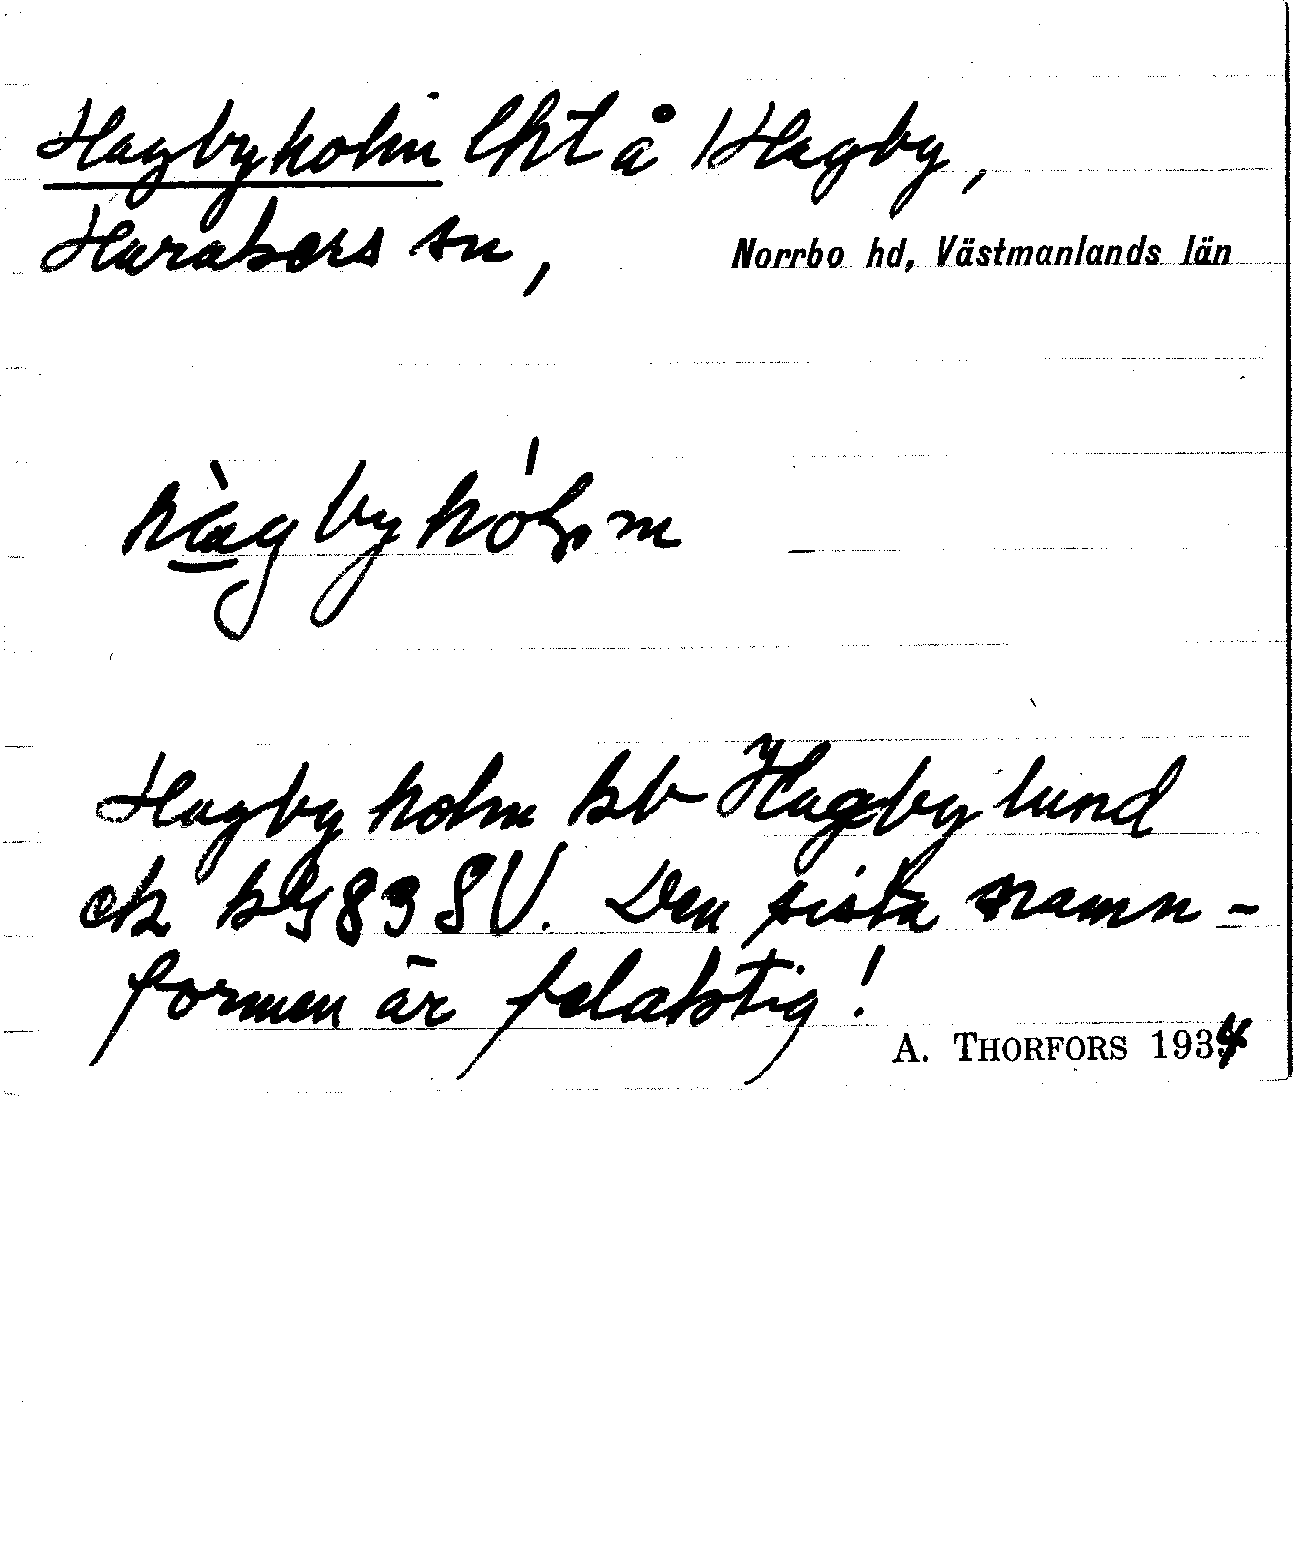 Hagbyholm lht å Hagby,
Harakers sn, Norrbo hd, Västmanlands län
hàgbyhól̥m
Hagbyholm kb Hagbylund
ek bl 83 SV. Den sista namn-
formen är felaktig!
A. THORFORS 1934